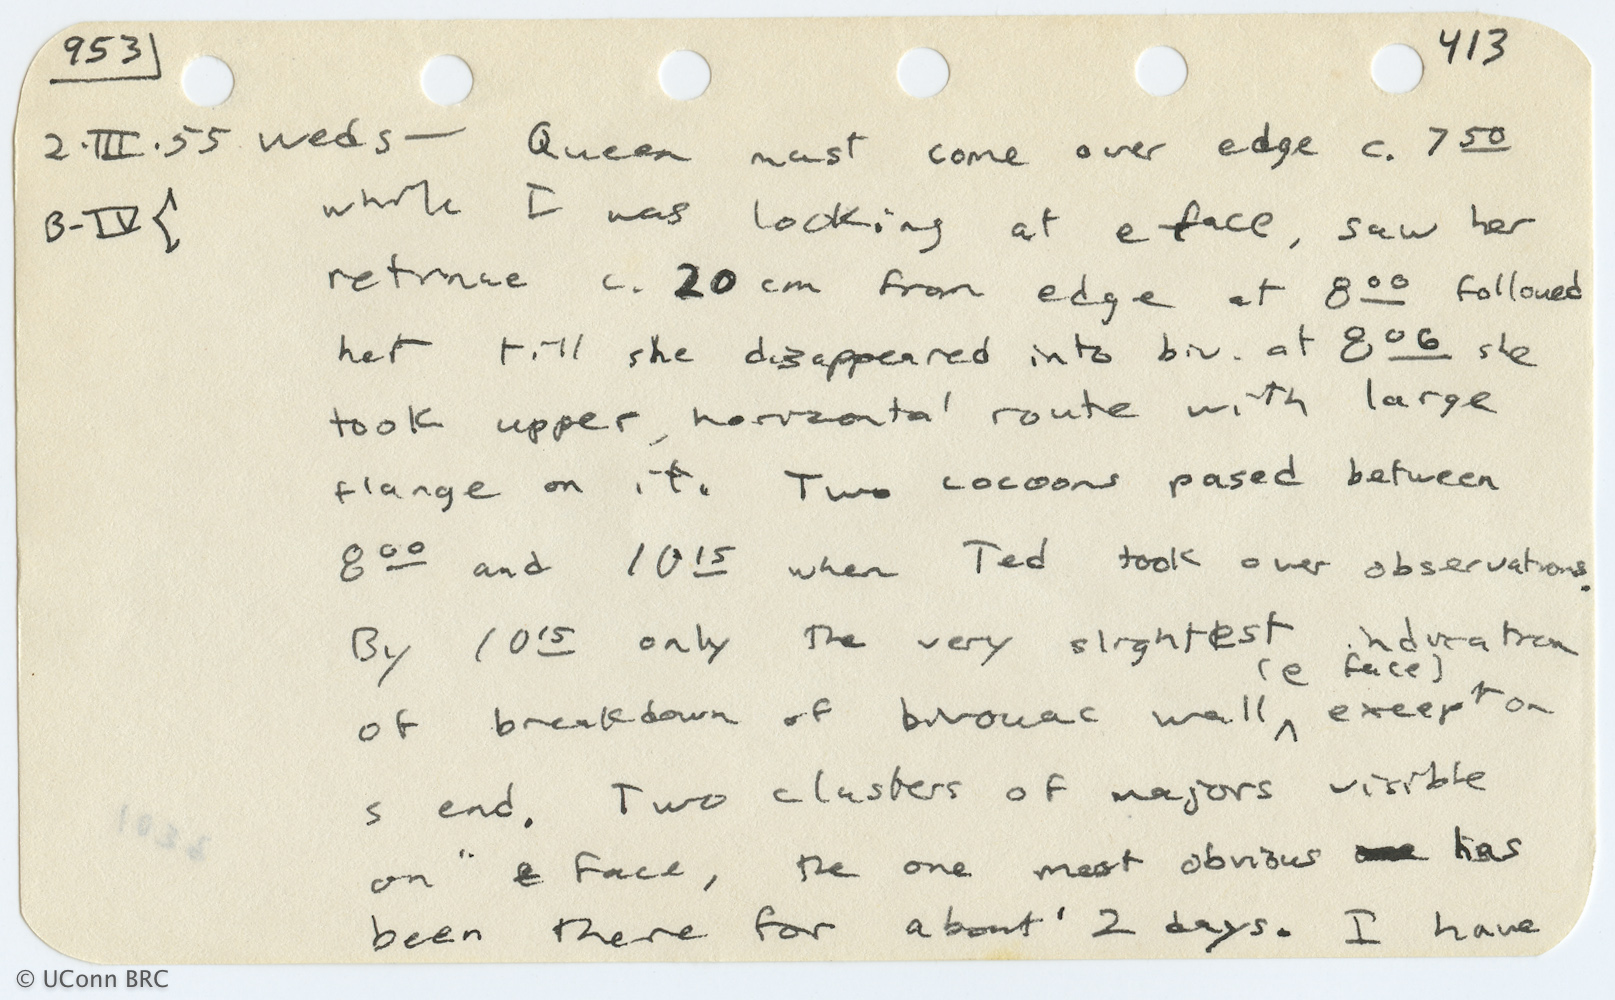 953 413
2·III·55 weds— Queen must come over edge c. 7 50
B-IV{ while I was looking at e face, saw her
retinue c. 20 cm from edge at 8 00 followed
het till she disappeared into biv. at 8 06 she
took upper, horizontal route with large
flange on it. Two cocoons pased between
8 00 and 10 15 when Ted took over observations.
By 10 15 only the very slightest indication
(e face)
of breakdown of bivouac wall ^ except on
s end. Two clusters of majors visible
on e face, the one most obvious has
been there for about 2 days. I have
© UConn BRC